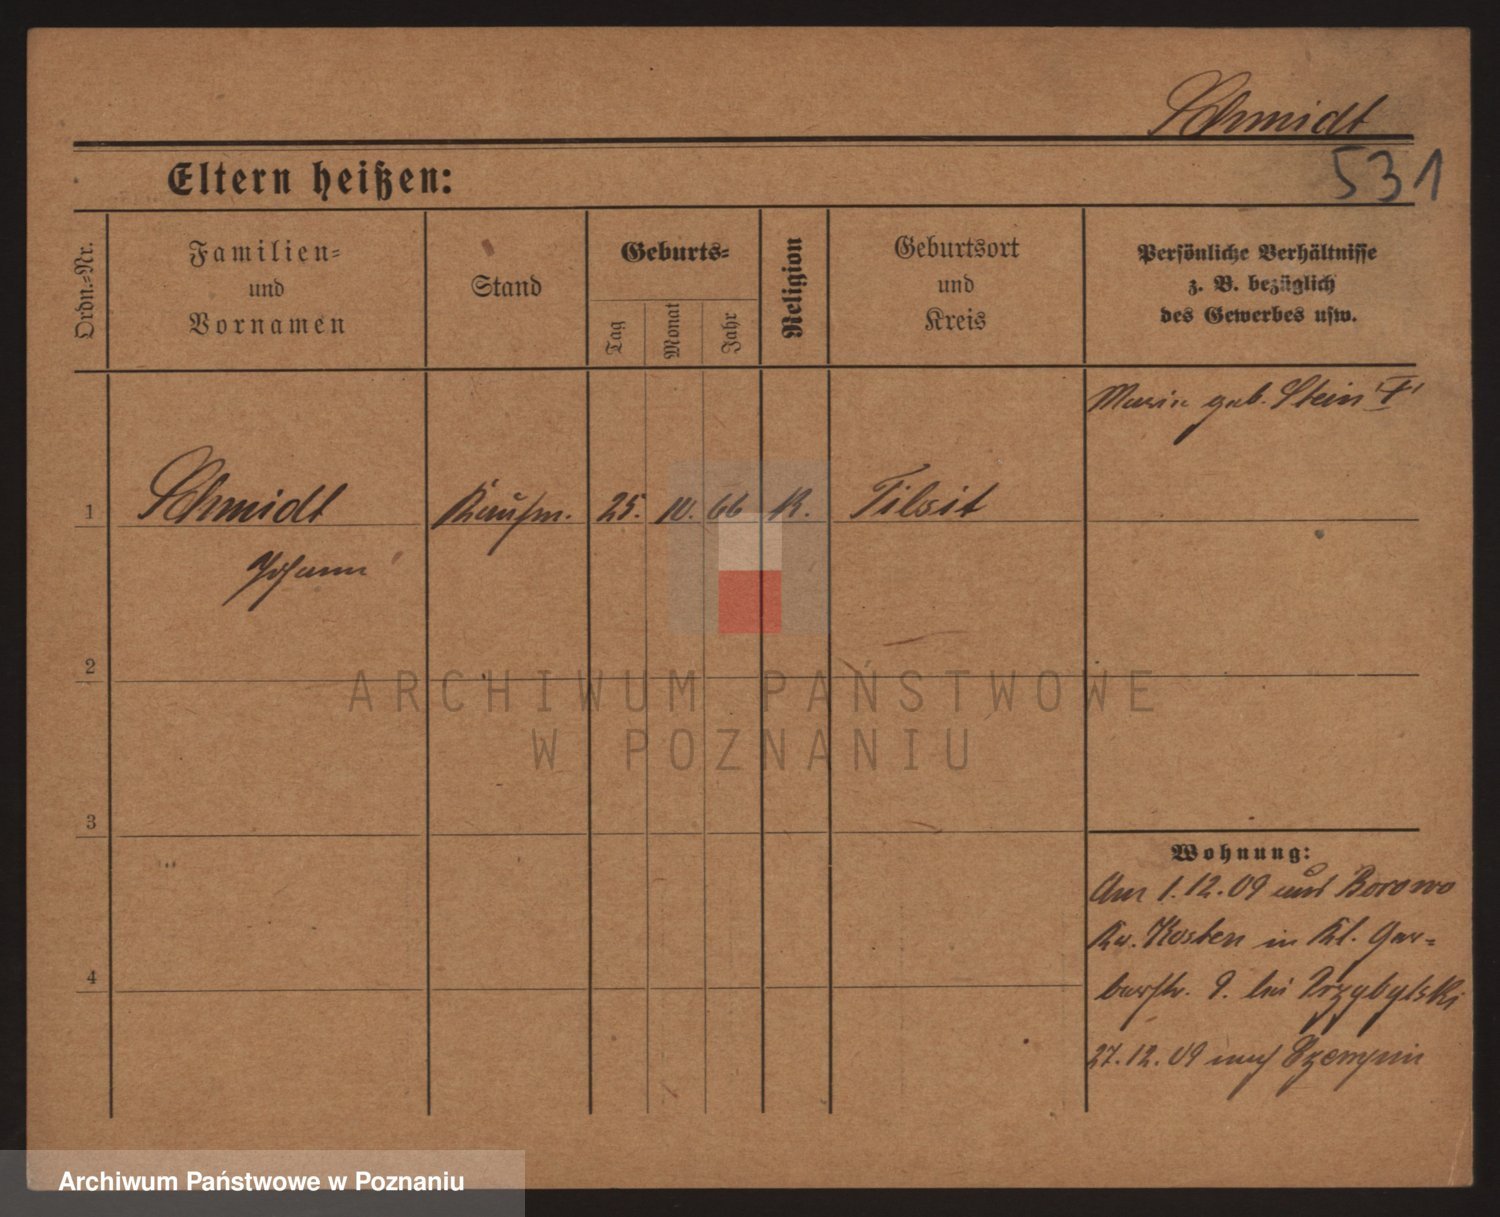 Schmidt
531
Eltern heißen:
Ordn.-Nr.
Familien-
und
Vornamen
Stand
Geburts-
Tag
Monat
Jahr
Religion
Geburtsort
und
Kreis
Persönliche Verhältnisse
z. B. bezüglich
des Gewerbes usw.
Maria geb. Stein
1
Schmidt
Kaufm.
25.
10.
66
K.
Tilsit
Johann
2
3
4
Wohnung:
Am 1.12.09 aus Borowo
Kr. Kosten in Kl. Ger-
berstr. 9. bei Przybylski
27.12.09 nach Czempin
ARCHIWUM PAŃSTWOWE
W POZNANIU
Archiwum Państwowe w Poznaniu